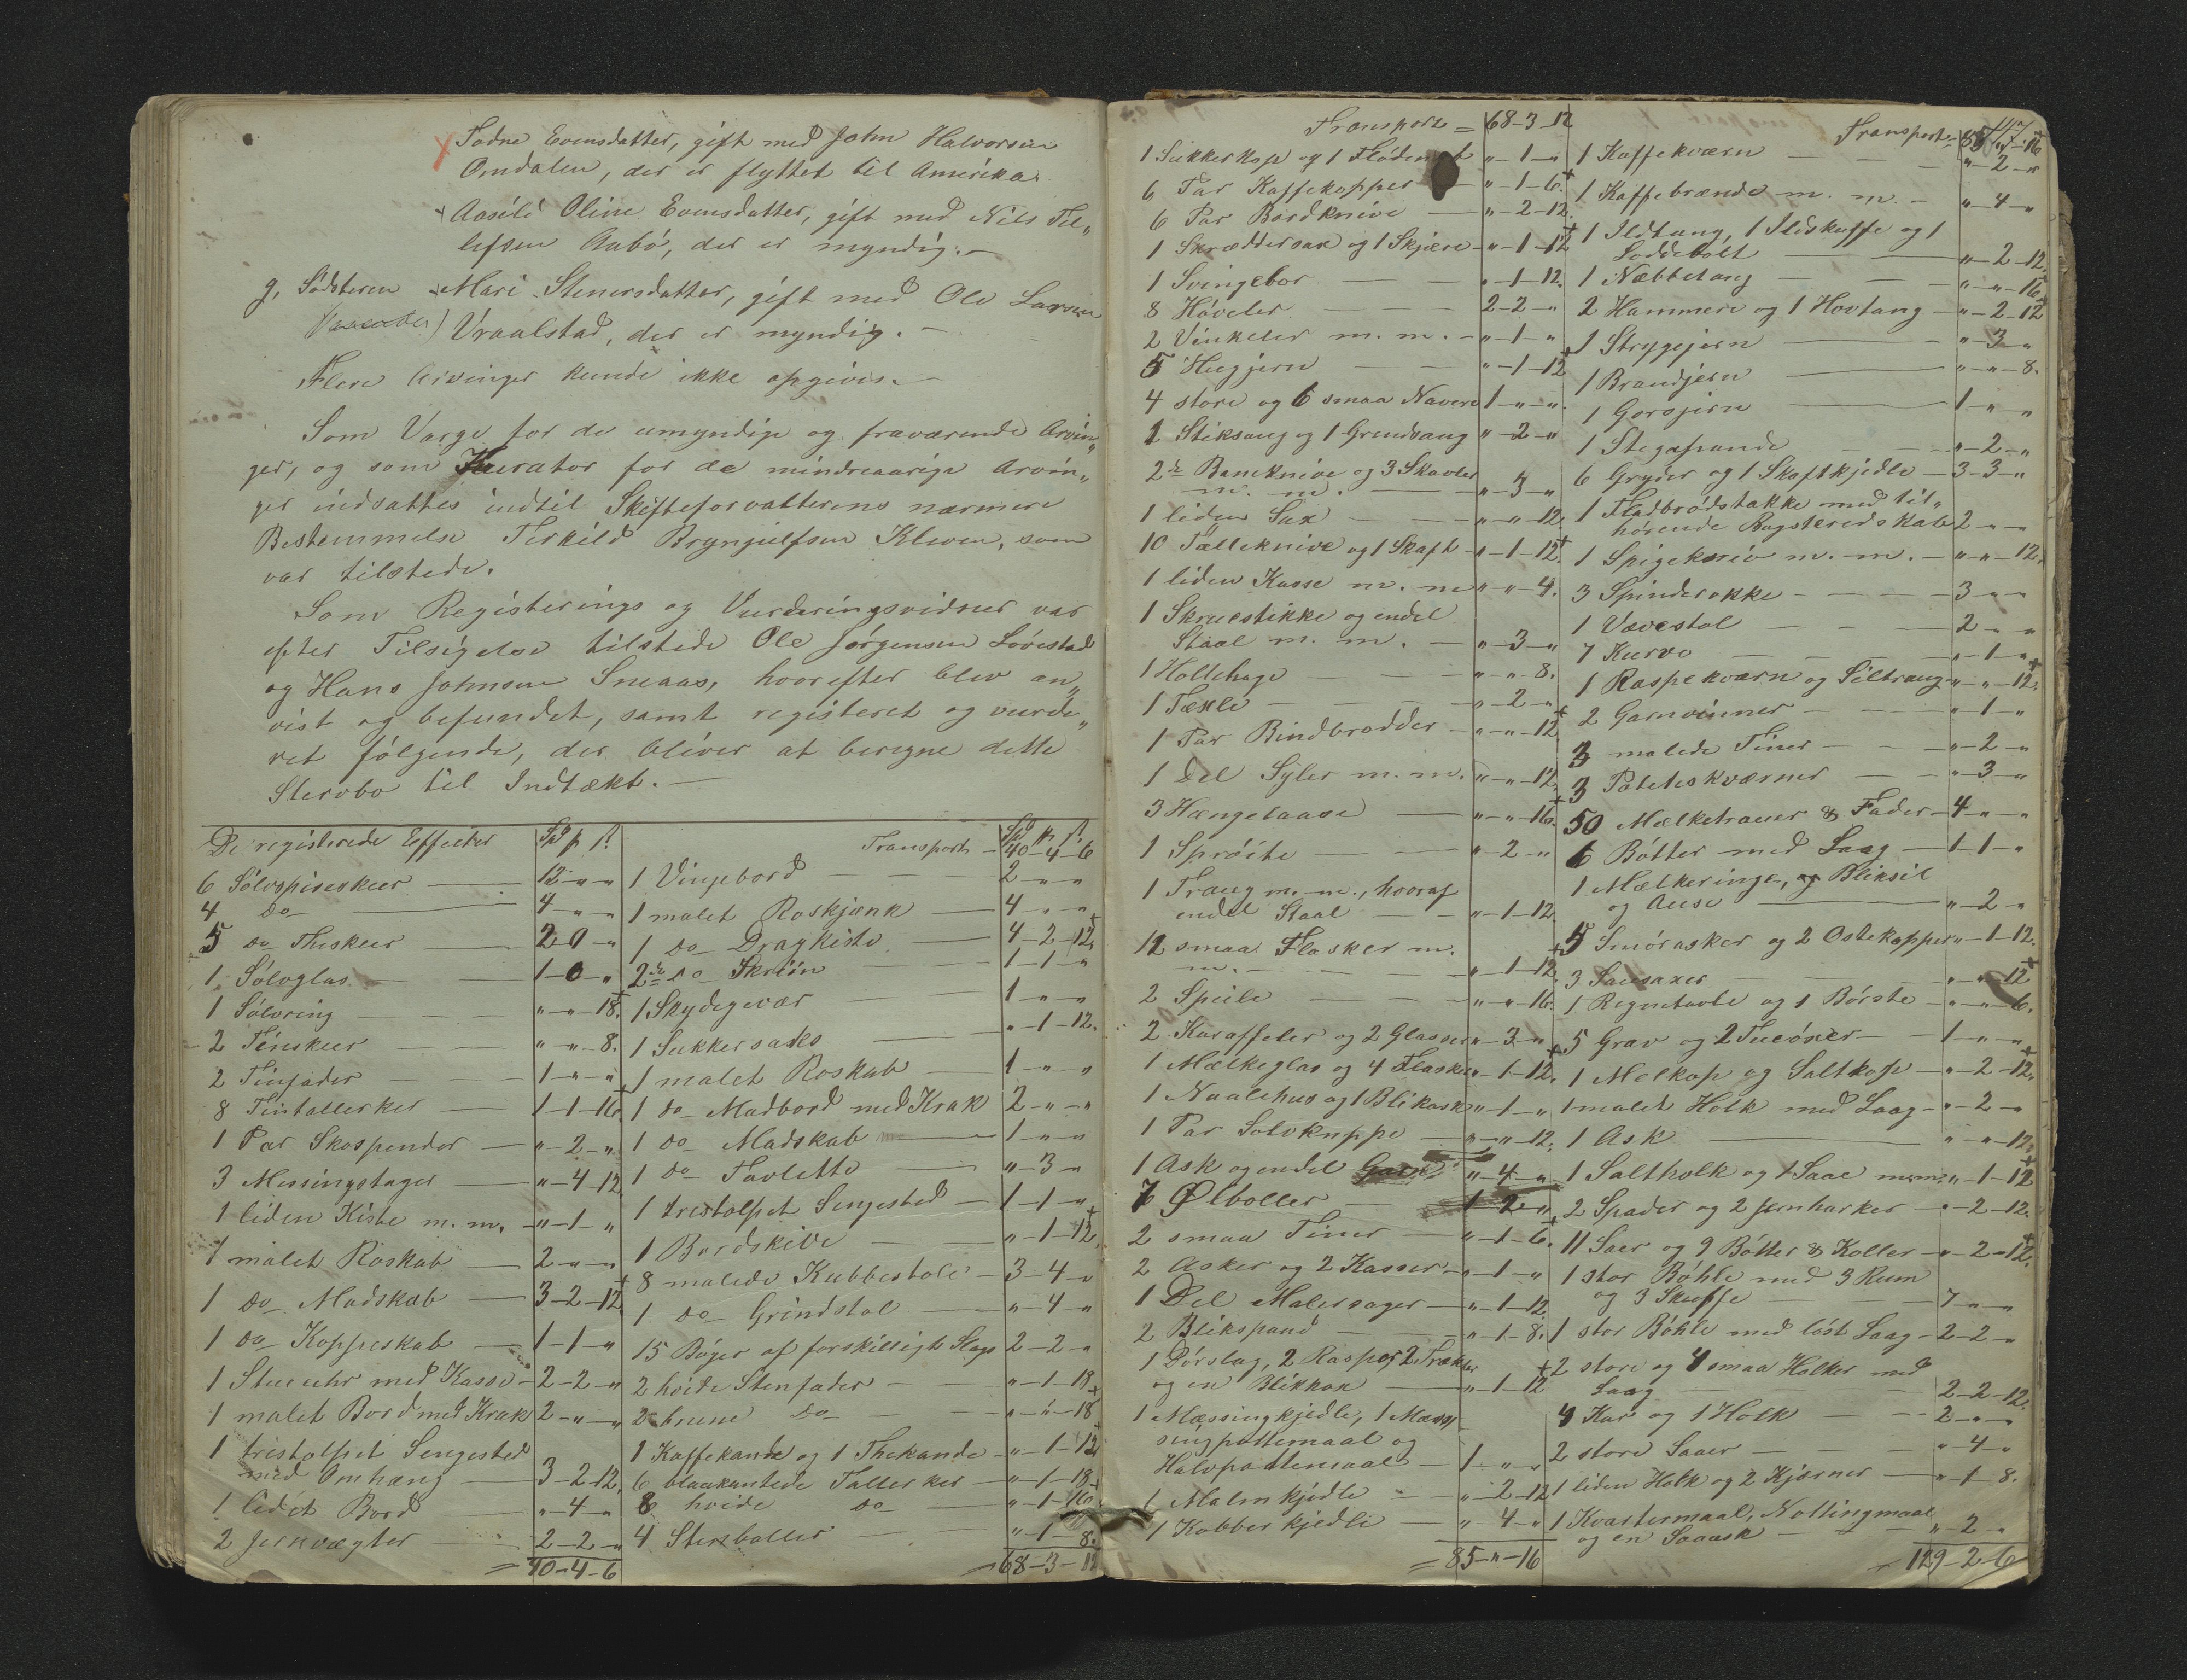 Todne Evensdatter, gift med John Halvorsen
Omdalen, der er flyttet til Amerika.
Aasild Oline Evensdatter, gift med Nils Tel„
lefsen Aabö, der er myndig.—
g, Södsteren Mari Stenersdatter, gift med Ole Larsen
Vraalstad, der er myndig.—
Flere Arvinger kunde ikke opgives.—
Som Værge for de umyndige og fraværende Arvin„
ger, og som Kurator for de mindreaarige Arvin„
ger indsattes indtil Skifteforvalterens nærmere
Bestemmelse Terkild Brynjulfsen Kleven, som
var tilstede.
Som Registerings og Vurderingsvidner var
efter Tilsigelse tilstede Ole Jörgensen Lövestad
og Hans Johnsen Sneaas, hvorefter blev an„
vist og befundet, samt registeret og vurde„
ret fölgende, der bliver at beregne dette
Stervbo til Indtækt.—
De registerede Effecter Spd p s
6 Sölvspiseskeer — 12 - „ - „
4 do — 4 - „ - „
5 do Theskeer — 2 - 0 - „
1 Sölvglas — 1 - 0 - „
1 Sölvring — „ - „ - 18.
2 Tinskeer — „ - „ - 8.
2 Tinfader — 1 - „ - „
8 Tintallerker — 1 - 1 - 16.
1 Par Skospender — „ - 2 - „
3 Messingstager — „ - 4 - 12
1 liden Kiste m. m. — „ - 1 - „
1 malet Roskab — 2 - „ - „
1 do Madskab — 3 - 2 - 12.
1 do Koppeskab — 1 - 1 - „
1 Stueuhr med Kasse — 2 - 2 - „
1 malet Bord med Krak 2 - „ - „
1 tristolpet Sengested
med Omhæng — 3 - 2 - 12.
1 lidet Bord — „ - 4 - „
2 Jernvægter — 2 - 2 - „
= 40 - 4 - 6
Transport — Spd p s 40 - 4 - 6
1 Vingebord — 2 - „ - „
1 malet Roskjænk — 4 - „ - „
1 do Dragkiste — 4 - 2 - 12.
2de do Skriin — 1 - 1 - „
1 Skydegevær — 1 - „ - „
1 Sukkersaks — „ - 1 - 12.
1 malet Roskab — 1 - „ - „
1 do Madbord med Krak 2 - „ - „
1 do Madskab — 1 - „ - „
1 do Tavlette — „ - 3 - „
1 tristolpet Sengested — 1 - 1 - „
1 Bordskive — „ - 1 - 12.
8 malede Kubbestole — 3 - 4 - „
1 do Grindstol — „ - 4 - „
15 Böger af forskilligt Slags 2 - 2 - „
2 hvide Stenfader — „ - 1 - 18
2 brune do — „ - „ - 18
1 Kaffekande og 1 Thekande — „ - 1 - 12
6 blaakantede Tallerker — „ - 1 - 18
8 hvide do — „ - 1 - 16
4 Stenboller — „ - 1 - 8.
= 68 - 3 - 12
Transport = 68 - 3 - 12
1 Sukkerkop og 1 Flödemug — „ - 1 - „
6 Par Kaffekopper — „ - 1 - 6.
6 Par Bordknive — „ - 2 - 12.
1 Skræddersax og 1 Skjære — „ - 1 - 12
1 Svingebor — „ - 1 - 12.
8 Höveler — 2 - 2 - „
2 Vinkeler m. m. — „ - 1 - „
5 Hugjern — „ - 1 - 12
4 store og 6 smaa Navere 1 - „ - „
1 Stiksaug og 1 Grendsaug „ - 2 - „
2de Baneknive og 3 Skavler
m. m. — „ - 3 - „
1 liden Sax — „ - „ - 12.
10 Tælleknive og 1 Skaft — „ - 1 - 12.
1 liden Kasse m. m „ - „ - 4.
1 Skruestikke og endel
Staal m. m. — „ - 3 - „
1 Hollehage — „ - „ - 8.
1 Texle — „ - 2 - „
1 Par Bindbrodder — „ - „ - 12
1 Del Syler m. m. „ - „ - 12.
3 Hængelaase — „ - „ - 16.
1 Spröite — „ - 2 - „
1 Traug m. m., hvoraf
endel Staal — „ - 1 - 12.
12 smaa Flasker m.
m. — „ - 1 - 12.
2 Speile — „ - „ - 16.
2 Karaffeler og 2 Glasser „ - 3 - „
1 Mælkeglas og 4 Flasker „ - 1 - 12.
1 Naalehus og 1 Blikask „ - 1 - „
1 Par Sölvknappe — „ - „ - 12.
1 Ask og endel Garn „ - 4 - „
7 Ølboller — 1 - 2 - „
2 smaa Tiner — „ - 1 - 6.
2 Asker og 2 Kasser — „ - 1 - „
1 Del Malersager — „ - 1 - 12.
2 Blikspand — „ - 1 - 8.
1 Dörslag, 2 Rasper, 2 Trakter
og en Blikkax — „ - 1 - 12
1 Mæssingkjedle, 1 Mæs„
singpottemaal og
Halvpottemaal — 1 - „ - „
1 Malmkjedle — „ - 2 - 12
1 Kobberkjedle — „ - 4 - „
= 85 - „ - 16
Transport = 85 - „ - 16
117
1 Kaffekværn — „ - 2 - „
1 Kaffebrænde m. m. — „ - 4 - „
1 Ildtang, 1 Ildskuffe og 1
Loddebolt — „ - 2 - 12.
1 Næbbetang — „ - „ - 16.
2 Hammere og 1 Hovtang — „ - 2 - 12
1 Strygejern — „ - 3 - „
1 Brandjern — „ - „ - 8.
1 Gorojern — 1 - „ - „
1 Stegepande — „ - 2 - „
6 Gryder og 1 Skaftkjedle — 3 - 3 - „
1 Fladbrödstakke med til„
hörende Bagsteredskab 2 - „ - „
1 Spigekniv m. m. — „ - „ - 12.
3 Spinderokke — 3 - „ - „
1 Vævestol — 2 - „ - „
7 Kurve — „ - 1 - „
1 Raspekværn og Siltraug — „ - „ - 12.
2 Garnvinner — „ - 1 - „
3 malede Tiner — „ - 2 - „
3 Poteteskværner — „ - 3 - „
50 Mælketrauer & Fader — 4 - „ - „
6 Bötter med Laag — 1 - 1 - „
1 Mælkeringe, Bliksil
og Ause — „ - 2 - „
5 Smörasker og 2 Ostekopper „ - 1 - 12.
3 Sausaxer — „ - „ - 12
1 Regnetavle og 1 Börste — „ - „ - 6.
5 Grav og — 1 - „ - „
1 Melkop og Saltkop — „ - 2 - 12.
1 malet Holk med Laag — „ - 2 - „
1 Ask — „ - „ - 12.
1 Saltholk og 1 Saae m.m. „ - 1 - 12
2 Spader og 2 Jernharker — „ - 2 - 12.
11 Saer og 9 Bötter & Koller — „ - 2 - 12.
1 stor Böhle med 3 Rum
og 3 Skuffe — 7 - „ - „
1 stor Böhle med löst Laag — 2 - 2 - „
2 store og 4 smaa Holker med
Laag — 2 - 2 - 12.
4 Kar og 1 Holk — 2 - „ - „
2 store Saaer — „ - 4 - „
1 liden Holk og 2 Kjerner — „ - 1 - 8.
1 Kvartermaal, Nottingmaal
og en Saaask — „ - 2 - „
129 - 2 - 6